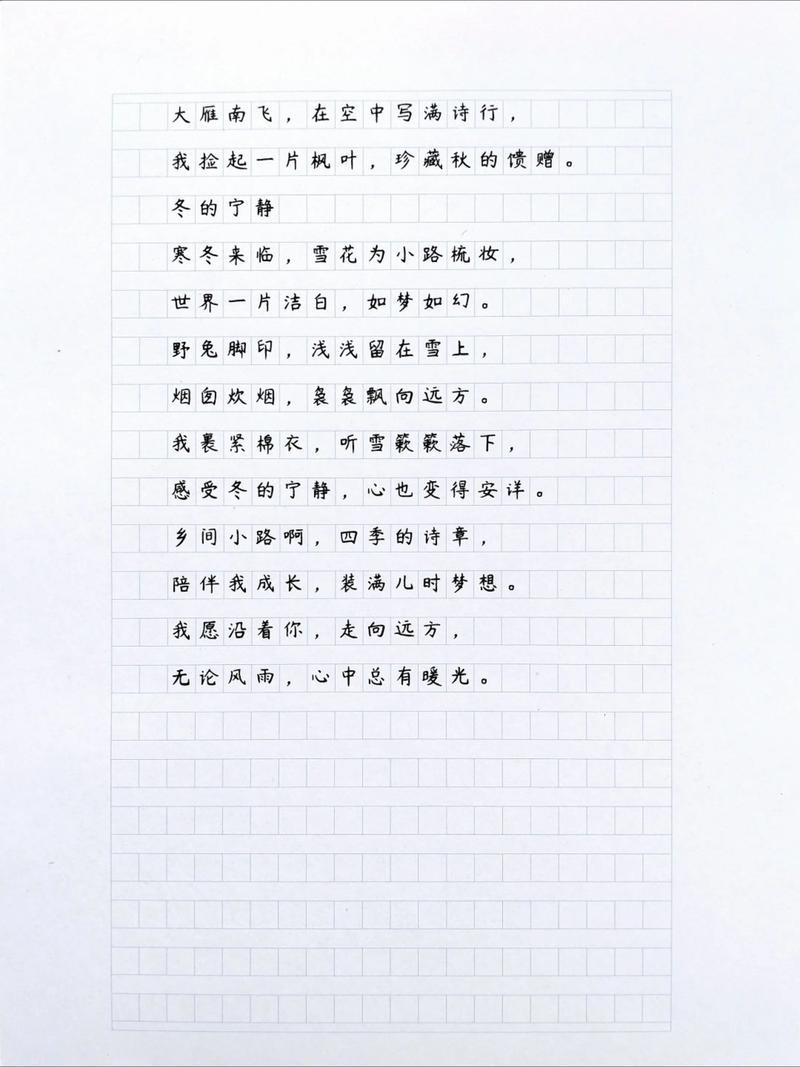 大雁南飞，在空中写满诗行，
我捡起一片枫叶，珍藏秋的馈赠。
冬的宁静
寒冬来临，雪花为小路梳妆，
世界一片洁白，如梦如幻。
野兔脚印，浅浅留在雪上，
烟囱炊烟，袅袅飘向远方。
我裹紧棉衣，听雪簌簌落下，
感受冬的宁静，心也变得安详。
乡间小路啊，四季的诗章，
陪伴我成长，装满儿时梦想。
我愿沿着你，走向远方，
无论风雨，心中总有暖光。